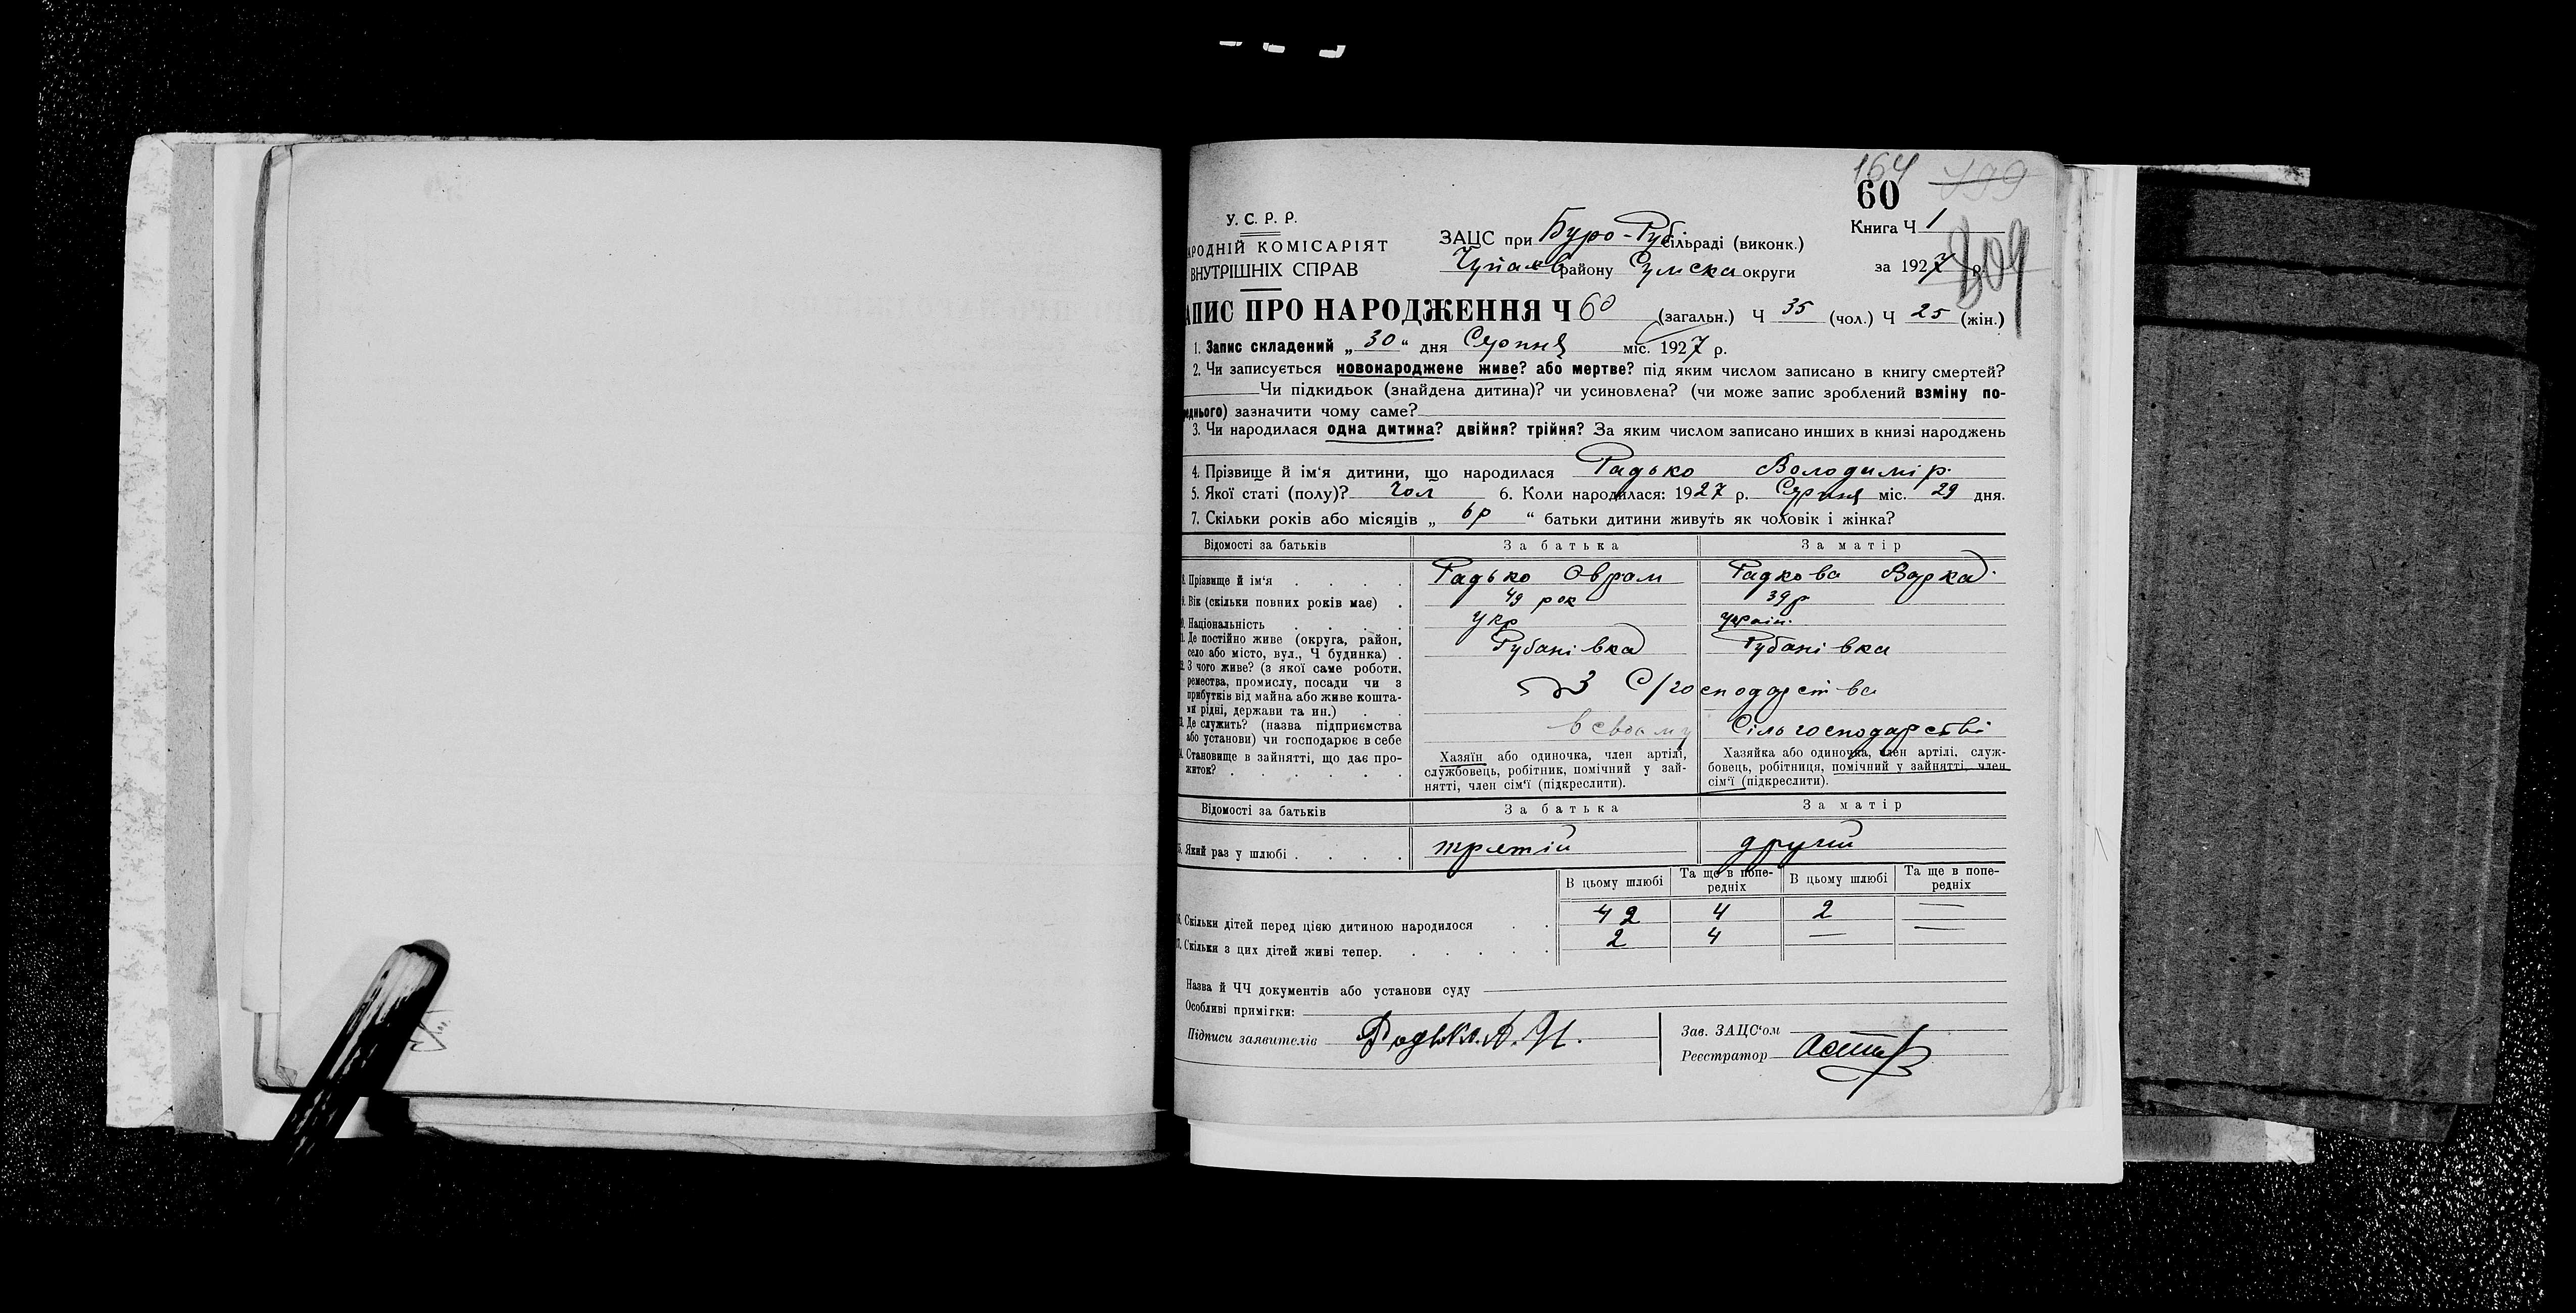 164 199
60
У. С. Р. Р.
АРОДНІЙ КОМІСАРІЯТ
ВНУТРІШНІХ СПРАВ
ЗАЦС при Буро-Руб сільраді (виконк.)
Книга Ч 1
район у Сумска округи
за 1927 р.
АПИС ПРО НАРОДЖЕННЯ Ч 60 (загальн.) Ч 35 (чол.) Ч 25 (жін.)
1. Запис складений „ 30 “ дня Серпня міс. 1927 р.
2. Чи записується новонароджене живе? або мертве? під яким числом записано в книгу смертей?
Чи підкидьок (знайдена дитина)? чи усиновлена? (чи може запис зроблений взміну по-
реднього) зазначити чому саме?
3. Чи народилася одна дитина? двійня? трійня? За яким числом записано инших в книзі народжень
4. Прізвище й ім‘я дитини, що народилася Радько Володимір
5. Якої статі (полу)? Чол 6. Коли народилася: 1927 р. Серпня міс. 29 дня.
7. Скільки років або місяців „ 6р “ батьки дитини живуть як чоловік і жінка?
Відомості за батьків За батька За матір
8. Прізвище й ім‘я . . . . Радько Оврам Радкова Варка
9. Вік (скільки повних років має) . 49 рок 39р
0. Національність . . . . укр україн.
1. Де постійно живе (округа, район,
село або місто, вул., Ч будинка) . Рубанівка Рубанівка
2. З чого живе? (з якої саме роботи,
ремества, промислу, посади чи з
прибутків від майна або живе кошта-
ми рідні, держави та ин.) . . З С/господарства
3. Де служить? (назва підприємства
або установи) чи господарює в себе в своєму Сільгосподарстві
4. Становище в зайнятті, що дає про-
житок? . . . . . .
Хазяїн або одиночка, член артілі,
службовець, робітник, помічний у зай-
нятті, член сім‘ї (підкреслити).
Хазяйка або одиночка, член артілі, служ-
бовець, робітниця, помічний у зайнятті, член
сім‘ї (підкреслити).
Відомості за батьків За батька За матір
5. Який раз у шлюбі . . . . третій другий
В цьому шлюбі Та ще в попе-
редніх В цьому шлюбі Та ще в попе-
редніх
6. Скільки дітей перед цією дитиною народилося . . 4 2 4 2 —
7. Скільки з цих дітей живі тепер. . . . . . 2 4 — —
Назва й ЧЧ документів або установи суду
Особливі примітки:
Підписи заявителів Радько. А. И.
Зав. ЗАЦС‘ом
Реєстратор